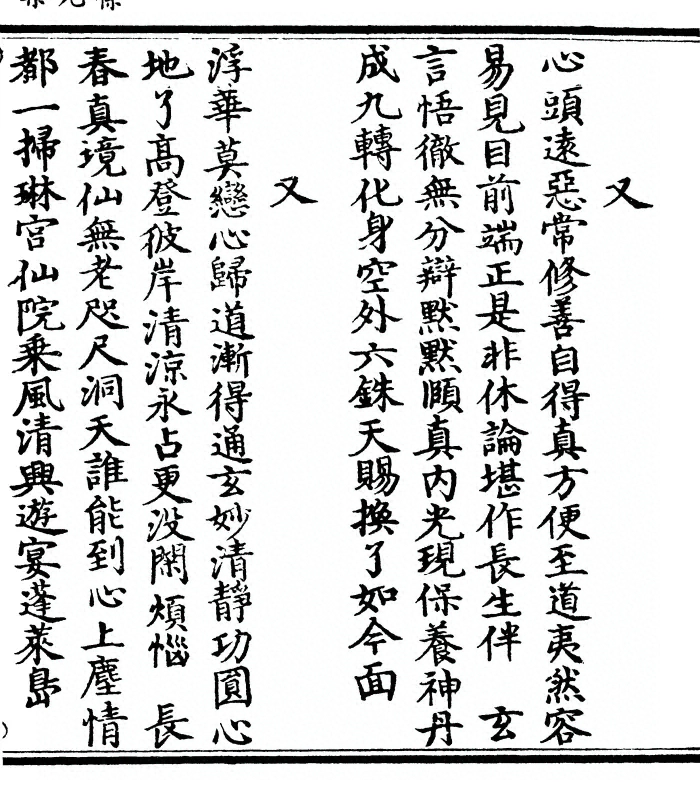 又
心頭遠惡常修善自得真方便至道夷然容
易見目前端正是非休論堪作長生伴　玄
言悟徹無分辯默默頤真内光現保養神丹
成九轉化身空外六銖天賜換了如今面
又
浮華莫戀心歸道漸得通玄妙清靜功圓心
地了高登彼岸清涼永占更没閑煩惱　長
春真境仙無老咫尺洞天誰能到心上塵情
都一掃琳宮仙院乘風清興遊宴蓬萊島